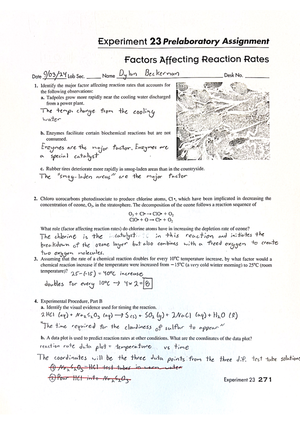 Experiment 23 Prelaboratory Assignment
Factors Affecting Reaction Rates
Date 9/03/24 Lab Sec. Name Dylan Beckerman Desk No.
1. Identify the major factor affecting reaction rates that accounts for
the following observations:
a. Tadpoles grow more rapidly near the cooling water discharged
from a power plant.
The temp. change from the cooling
water
b. Enzymes facilitate certain biochemical reactions but are not
consumed.
Enzymes are the major factor. Enzymes are
a special catalyst
c. Rubber tires deteriorate more rapidly in smog-laden areas than in the countryside.
The "smog-laden areas" are the major factor
2. Chloro oxocarbons photodissociate to produce chlorine atoms, Cl•, which have been implicated in decreasing the
concentration of ozone, O₃, in the stratosphere. The decomposition of the ozone follows a reaction sequence of
O₃ + Cl• → ClO• + O₂
ClO• + O → Cl• + O₂
What role (factor affecting reaction rates) do chlorine atoms have in increasing the depletion rate of ozone?
The chlorine is the catalyst in this reaction and initiates the
breakdown of the ozone layer but also combines with a freed oxygen to create
two oxygen molecules.
3. Assuming that the rate of a chemical reaction doubles for every 10°C temperature increase, by what factor would a
chemical reaction increase if the temperature were increased from −15°C (a very cold winter morning) to 25°C (room
temperature)?
25-(-15) = 40°C increase
doubles for every 10°C → 4×2=8
4. Experimental Procedure, Part B
a. Identify the visual evidence used for timing the reaction.
2HCl (aq) + Na₂S₂O₃ (aq) → S (s) + SO₂ (g) + 2NaCl (aq) + H₂O (l)
"The time required for the cloudiness of sulfur to appear"
b. A data plot is used to predict reaction rates at other conditions. What are the coordinates of the data plot?
reaction rate data plot = temperature vs time
The coordinates will be the three data points from the three d.p. test tube solutions
HCl test tubes in warm water
Pour HCl into Na₂S₂O₃
Experiment 23 271